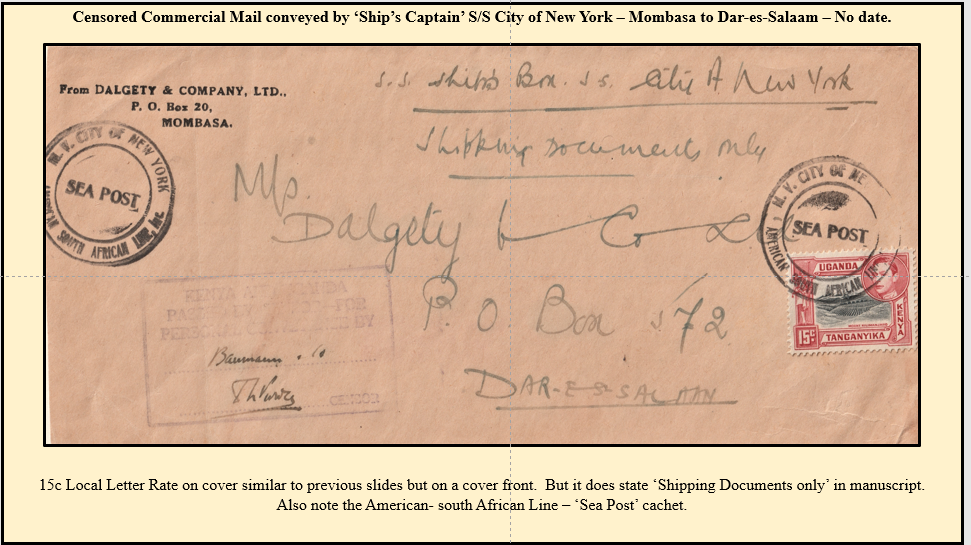 Censored Commercial Mail conveyed by ‘Ship’s Captain’ S/S City of New York – Mombasa to Dar-es-Salaam – No date.
From DALGETY & COMPANY, LTD.,
P. O. Box 20,
MOMBASA.
S.S. Ship's Box. S.S. City of New York
Shipping Documents only
M. V. CITY OF NEW YORK
SEA POST
SOUTH AFRICAN LINE, Inc.
M/s.
Dalgety & Co L
P. O Box 572
DAR-ES-SALAAM
M. V. CITY OF NE
SEA POST
AMERICAN SOUTH AFRICAN LINE
UGANDA
KENYA
15c
TANGANYIKA
KENYA
PERSONAL BY
Baumann & Co
CENSOR
15c Local Letter Rate on cover similar to previous slides but on a cover front.  But it does state ‘Shipping Documents only’ in manuscript.
Also note the American- south African Line – ‘Sea Post’ cachet.